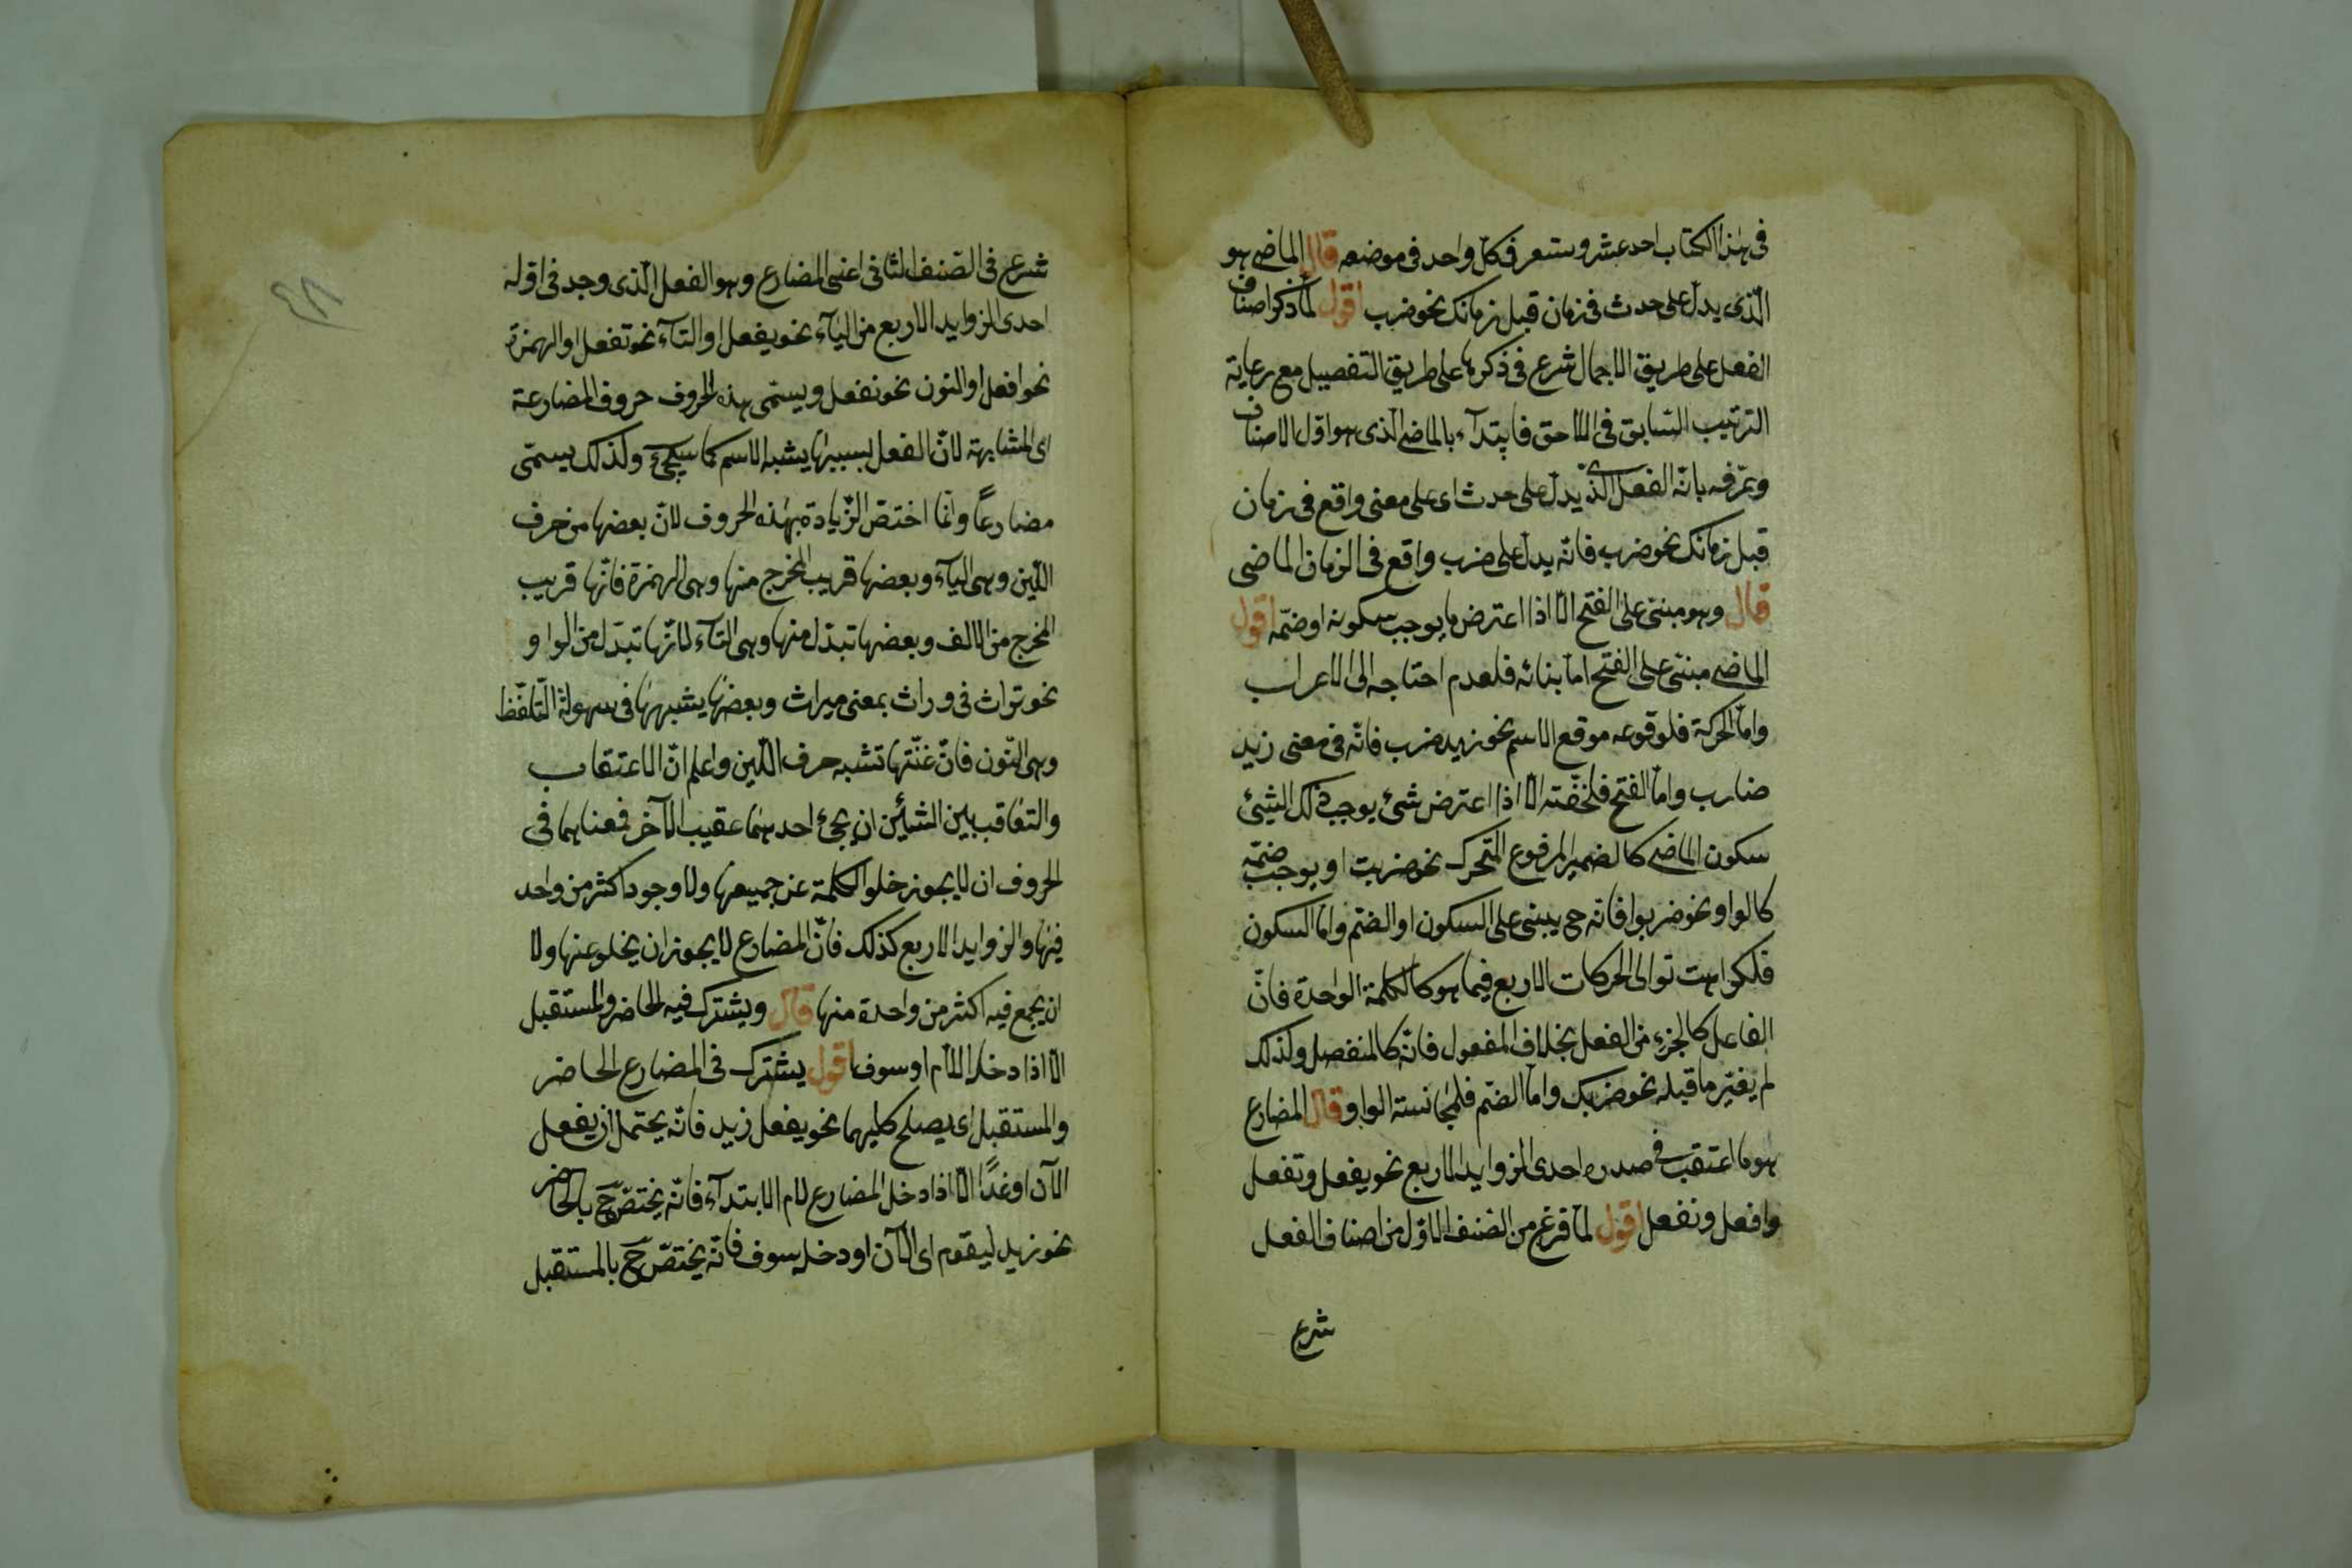 فى هذا الكتاب احد عشر وستعرف كلّ واحد فى موضعه قال الماضى هو
الّذى يدلّ على حدث فى زمان قبل زمانك نحو ضرب اقول لمّا ذكر اصناف
الفعل على طريق الاجمال شرع فى ذكرها على طريق التفصيل مع رعاية
الترتيب السّابق فى اللاحق فابتدآء بالماضى الّذى هو اوّل الاصناف
وعرّفه بانّه الفعل الّذى يدلّ على حدث اى على معنى واقع فى زمان
قبل زمانك نحو ضرب فانّه يدلّ على ضرب واقع فى الزمان الماضى
قال وهو مبنىّ على الفتح الّا اذا اعترض ما يوجب سكونه او ضمّه اقول
الماضى مبنىّ على الفتح امّا بنائه فلعدم احتاجه الى الاعراب
وامّا الحركة فلوقوعه موقع الاسم نحو زيد ضرب فانّه فى معنى زيد
ضارب وامّا الفتح فلخفّته الّا اذا اعترض شئ يوجب ذلك الشيئ
سكون الماضى كالضمير المرفوع المتحرك نحو ضربت او يوجب ضمّه
كالواو نحو ضربوا فانّه ح يبنى على السكون او الضمّ وامّا السكون
فلكراهت توالى الحركات الاربع فيما هو كالكلمة الواحدة فانّ
الفاعل كالجزء من الفعل بخلاف المفعول فانّه كالمنفصل ولذلك
لم يغيّر ما قبله نحو ضربك وامّا الضمّ فلمجانسته الواو قال المضارع
هو ما اعتقب فى صدره احدى الزوايد الاربع نحو يفعل وتفعل
وافعل ونفعل اقول لمّا فرغ من الصّنف الاوّل من اصناف الفعل
شرع
شرع فى الصّنف الثانى اعنى المضارع وهو الفعل الّذى وجد فى اوّله
احدى الزوايد الاربع من اليآء نحو يفعل او التآء نحو تفعل او الهمزة
نحو افعل او النون نحو نفعل ويسمّى هذه الحروف حروف المضارعة
اى المشابهة لانّ الفعل بسببها يشبه الاسم كما سيجئ ولذلك يسمّى
مضارعاً وانّما اختصّ الزّيادة بهذه الحروف لانّ بعضها من حرف
اللّين وهى اليآء وبعضها قريب المخرج منها وهى الهمزة فانّها قريب
المخرج من الالف وبعضها تبدّل منها وهى التآء لانّها تبدّل من الواو
نحو تراث فى وراث بمعنى ميراث وبعضها يشبهها فى سهولة التّلفّظ
وهى النّون فانّ غنّتها تشبه حرف اللّين واعلم انّ الاعتقاب
والتعاقب بين الشيئين ان يجئ احدهما عقيب الآخر فمعناهما فى
الحروف ان لا يجوز خلو الكلمة عن جميعها ولا وجود اكثر من واحد
فيها والزوايد الاربع كذلك فانّ المضارع لا يجوز ان يخلو عنها ولا
ان يجمع فيه اكثر من واحدة منها قال ويشترك فيه الحاضر والمستقبل
الّا اذا دخله اللّام او سوف اقول يشترك فى المضارع الحاضر
والمستقبل اى يصلح كليهما نحو يفعل زيد فانّه يحتمل ان يفعل
الآن او غدًا الّا اذا دخل المضارع لام الابتدآء فانّه يختصّ ح بالحاضر
نحو زيد ليقوم اى الآن او دخله سوف فانّه يختصّ ح بالمستقبل